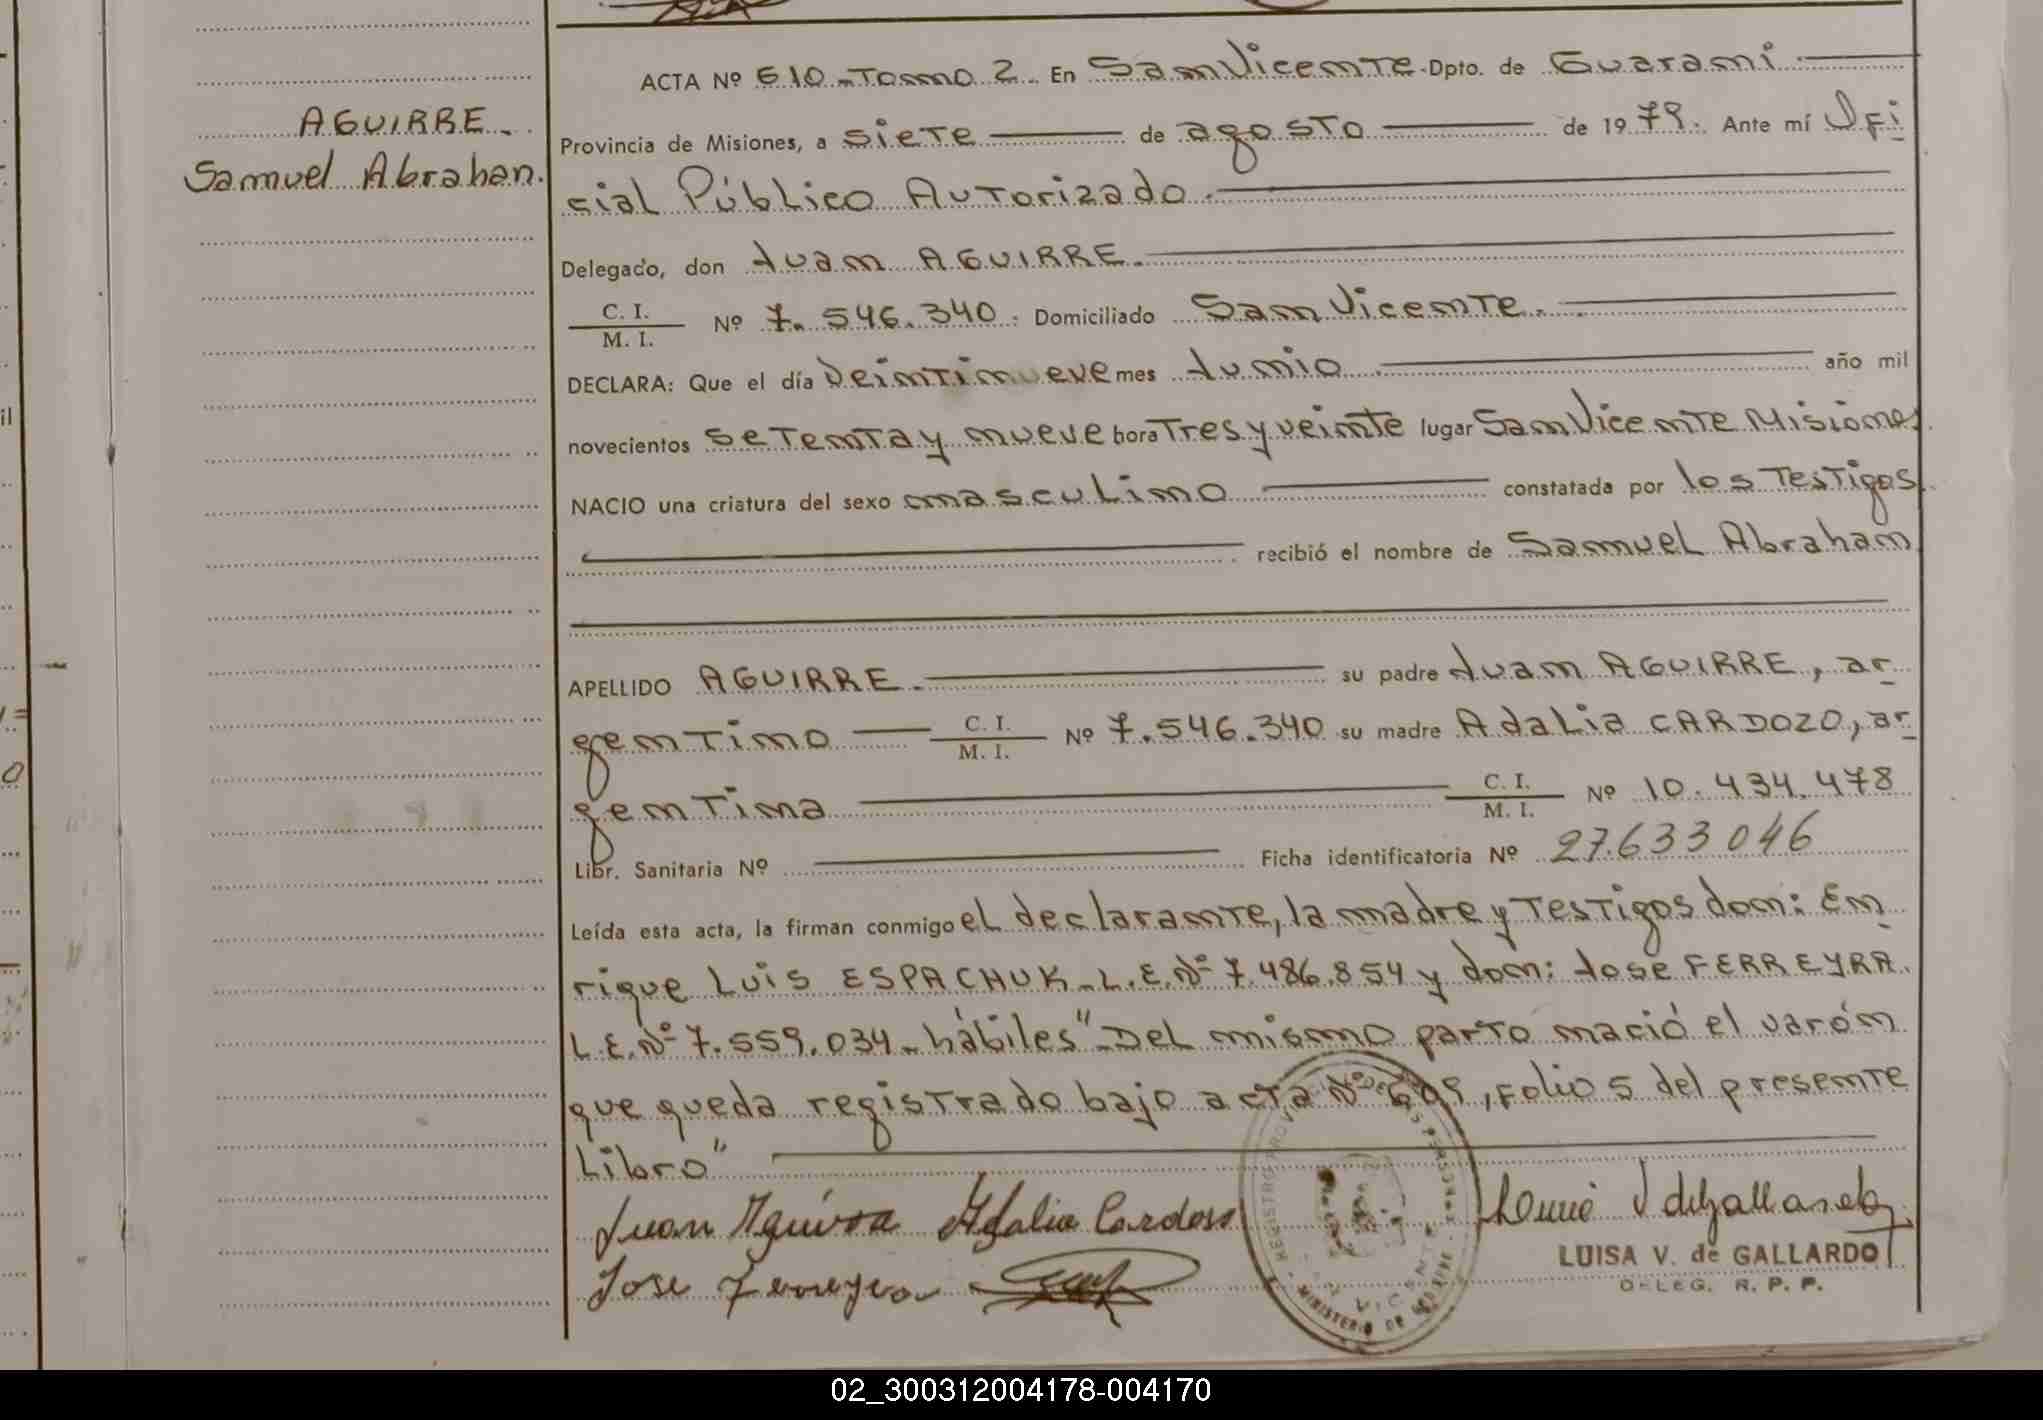 AGUIRRE.
Samuel Abrahan.
ACTA Nº 610-Tomo 2. En San Vicente. Dpto. de Guaraní
Provincia de Misiones, a siete de agosto de 1979. Ante mí Ofi
cial Público Autorizado.
Delegado, don Juan AGUIRRE.
C. I.
M. I. Nº 7.546.340. Domiciliado San Vicente.
DECLARA: Que el día Veintinueve mes Junio año mil
novecientos setenta y nueve hora Tres y veinte lugar San Vicente Misiones
NACIO una criatura del sexo masculino constatada por los Testigos
recibió el nombre de Samuel Abraham
APELLIDO AGUIRRE. su padre Juan AGUIRRE, ar
gentino C. I. M. I. Nº 7.546.340 su madre Adalia CARDOZO, ar
gentina C. I. M. I. Nº 10.434.478
Libr. Sanitaria Nº Ficha identificatoria Nº 27.633046
Leída esta acta, la firman conmigo el declarante, la madre y Testigos don: En
rique Luis ESPACHUK-L.E.Nº 7.486.854 y don: Jose FERREYRA.
L.E.Nº 7.559.034-hábiles"-Del mismo parto nació el varón
que queda registrado bajo acta Nº 609, Folio 5 del presente
Libro"
Juan Aguirra Adalia Cardoso
Jose Ferreyra
LUISA V. de GALLARDO
DELEG. R. P. P.
02_300312004178-004170